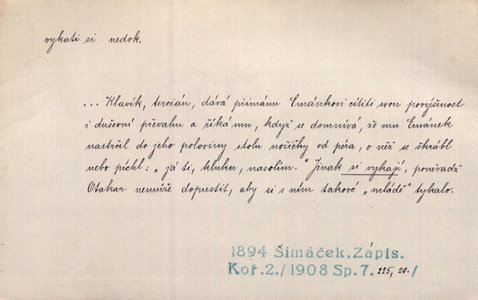 vykati si nedok.
... Klavík, tercián, dává primánu Emánkovi cítiti svou povýšenost
i duševní převahu a říká mu, když se domnívá, že mu Emánek
nastrčil do jeho poloviny stolu nožičky od péra, o něž se škrábl
nebo píchl: „já ti, kluku, nasolím." Jinak si vykají, poněvadž
Otakar nemůže dopustit, aby si s ním takové „mládě" tykalo.
1894 Šimáček, Zápis.
Koř.2./1908 Sp.7. 225, 20./